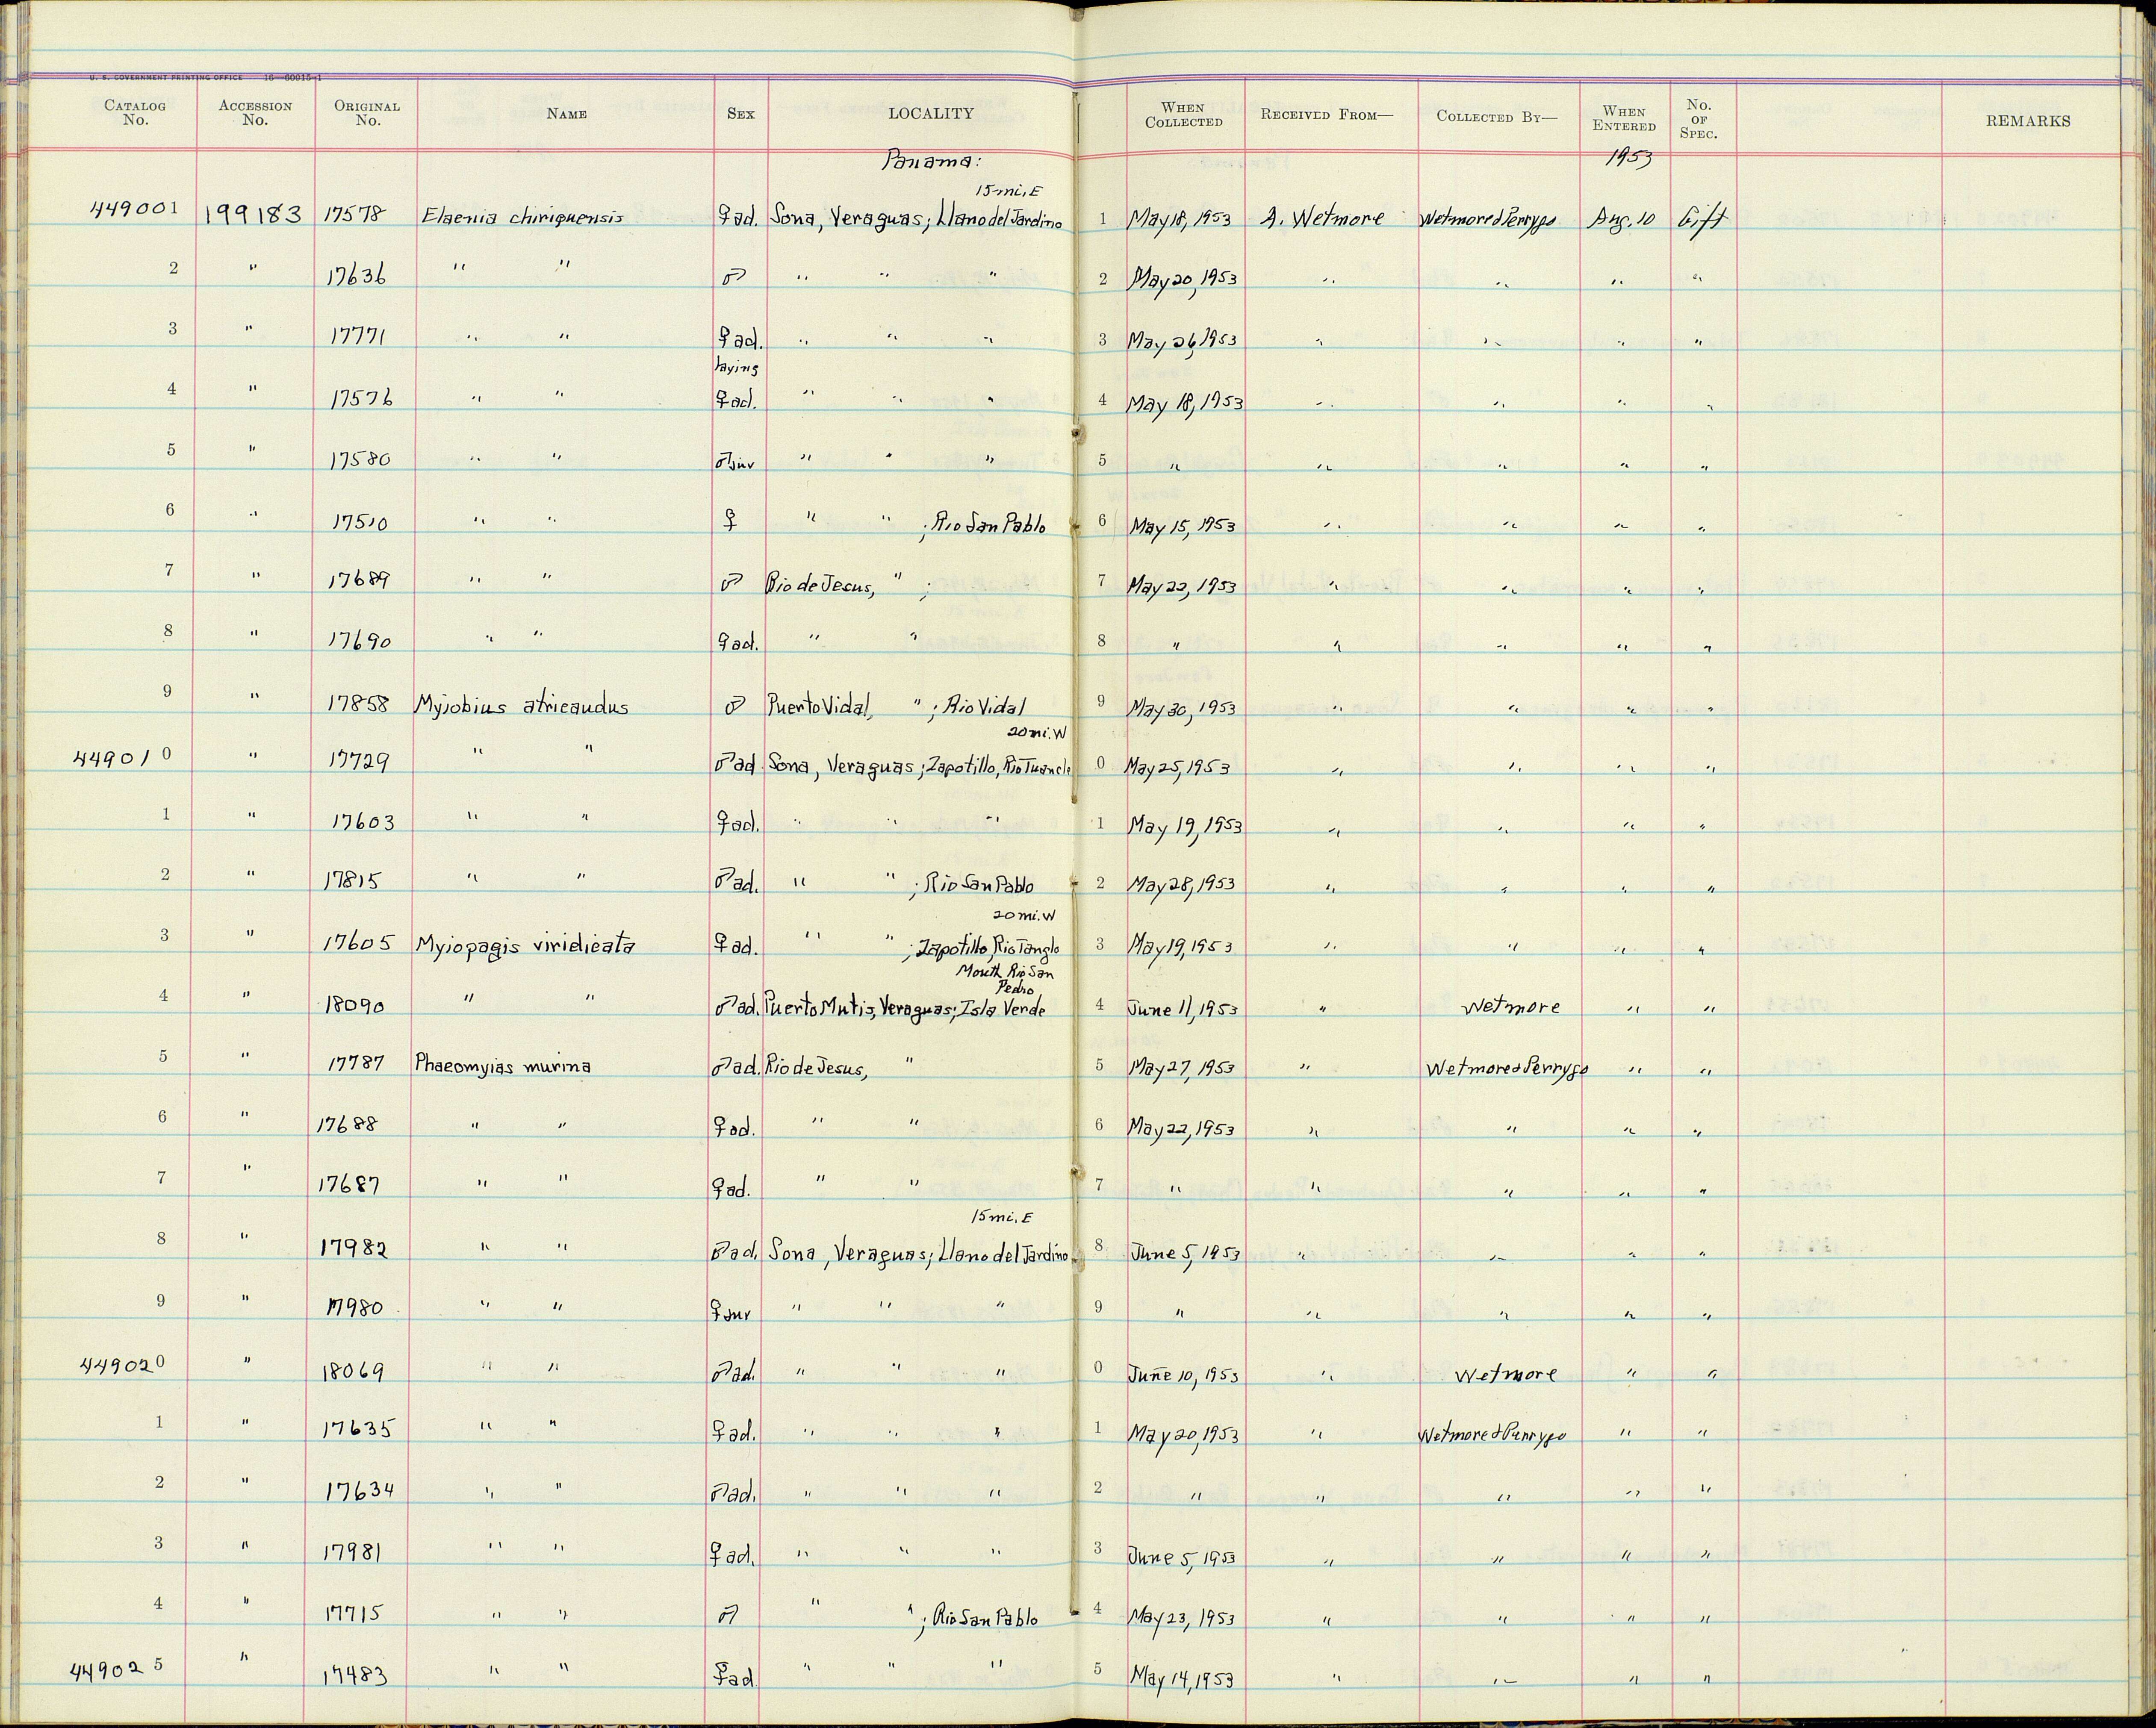 U. S. GOVERNMENT PRINTING OFFICE 16—60015-1
CATALOG No. ACCESSION No. ORIGINAL No. NAME SEX LOCALITY WHEN COLLECTED RECEIVED FROM— COLLECTED BY— WHEN ENTERED No. OF SPEC. REMARKS
Panama: 1953
15 mi. E
449001 199183 17578 Elaenia chiriquensis ♀ ad. Sona, Veraguas; Llano del Jardino 1 May 18, 1953 A. Wetmore Wetmore & Perrygo Aug. 10 Gift
2 " 17636 " " ♂ " " " 2 May 20, 1953 " " " "
3 " 17771 " " ♀ ad. " " " 3 May 26, 1953 " " " "
laying
4 " 17576 " " ♀ ad. " " " 4 May 18, 1953 " " " "
5 " 17580 " " ♂ juv " " " 5 " " " " "
6 " 17510 " " ♀ " " ; Rio San Pablo 6 May 15, 1953 " " " "
7 " 17689 " " ♂ Rio de Jesus, " ; 7 May 22, 1953 " " " "
8 " 17690 " " ♀ ad. " " 8 " " " " "
9 " 17858 Myiobius atricaudus ♂ Puerto Vidal, " ; Rio Vidal 9 May 30, 1953 " " " "
20 mi. W
449010 " 17729 " " ♂ ad Sona, Veraguas; Zapotillo, Rio 0 May 25, 1953 " " " "
1 " 17603 " " ♀ ad. " " " 1 May 19, 1953 " " " "
2 " 17815 " " ♂ ad. " " ; Rio San Pablo 2 May 28, 1953 " " " "
20 mi. W
3 " 17605 Myiopagis viridicata ♀ ad. " " ; Zapotillo, Rio 3 May 19, 1953 " " " "
Mouth Rio San
Pedro
4 " 18090 " " ♂ ad. Puerto Mutis, Veraguas; Isla Verde 4 June 11, 1953 " Wetmore " "
5 " 17787 Phaeomyias murina ♂ ad. Rio de Jesus, " 5 May 27, 1953 " Wetmore & Perrygo " "
6 " 17688 " " ♀ ad. " " 6 May 22, 1953 " " " "
7 " 17687 " " ♀ ad. " " 7 " " " " "
15 mi. E
8 " 17982 " " ♂ ad. Sona, Veraguas; Llano del Jardino 8 June 5, 1953 " " " "
9 " 17980 " " ♀ juv " " " 9 " " " " "
449020 " 18069 " " ♂ ad. " " " 0 June 10, 1953 " Wetmore " "
1 " 17635 " " ♀ ad. " " " 1 May 20, 1953 " Wetmore & Perrygo " "
2 " 17634 " " ♂ ad. " " " 2 " " " " "
3 " 17981 " " ♀ ad. " " " 3 June 5, 1953 " " " "
4 " 17715 " " ♂ " " ; Rio San Pablo 4 May 23, 1953 " " " "
449025 " 17483 " " ♀ ad " " " 5 May 14, 1953 " " " "